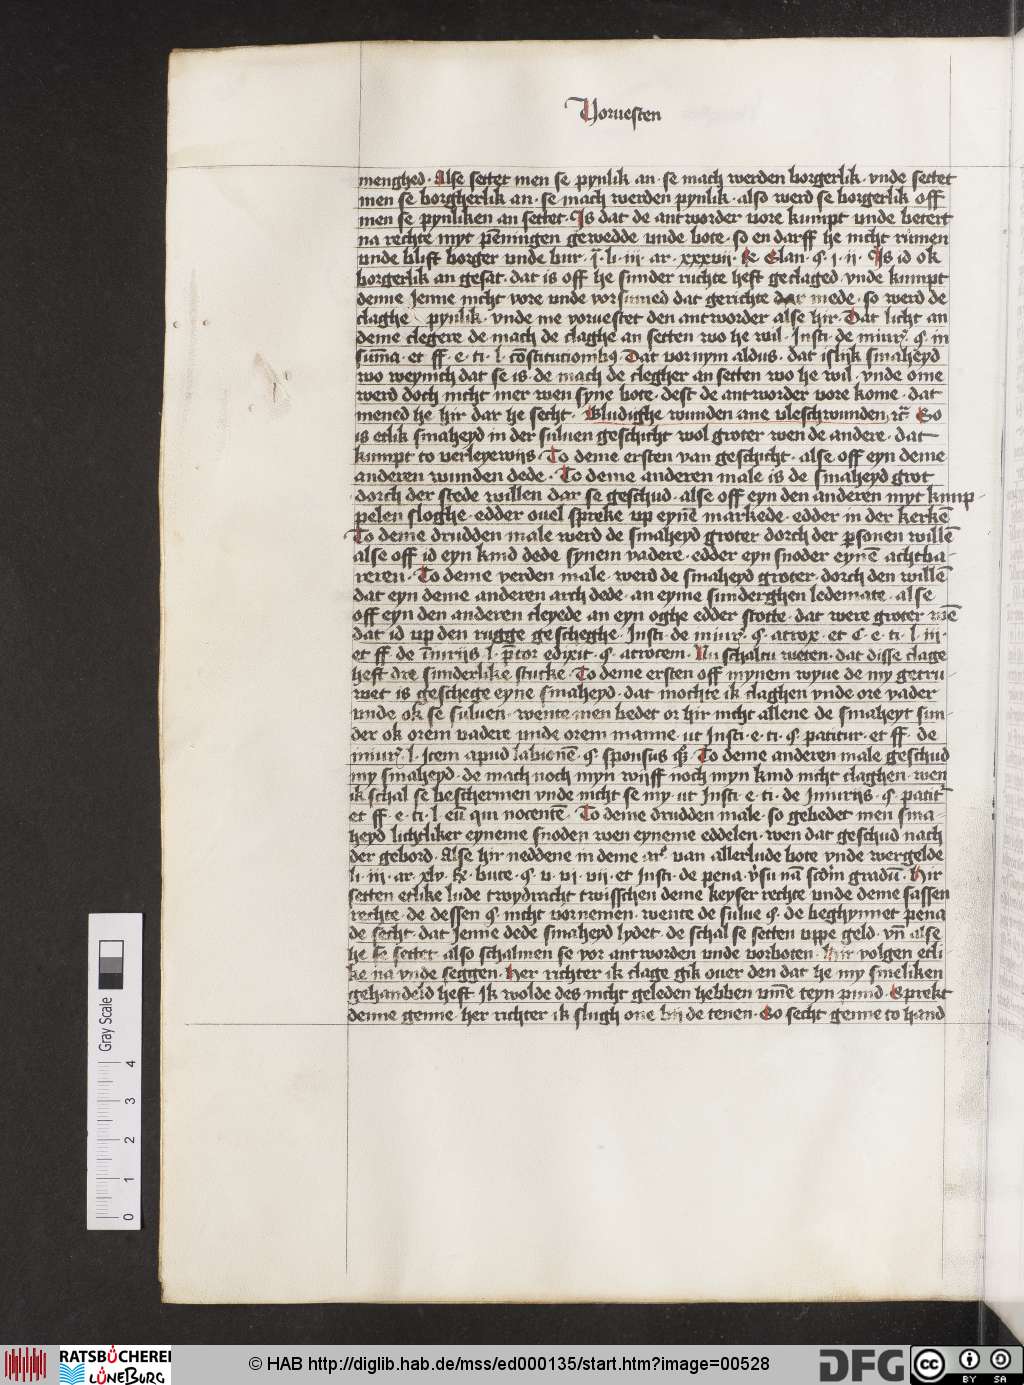 Voruesten
menghed · Alse settet men se pynlik an · se mach werden borgerlik · vnde settet
men se borgherlik an · se mach werden pynlik · also werd se borgerlik off
men se pynliken an settet · Is dat de antworder vore kumpt vnde betert
na rechte myt pēningen gewedde vnde bote · so en darff he nicht rumen
vnde blift borger vnde bur · li · iii · ar · xxxvii · Is id ok
borgerlik an gesat · dat is off he sunder ruchte heft geclaged · vnde kumpt
denne Jenne nicht vore vnde vorsumed dat gerichte dar mede · so werd de
claghe pynlik · vnde me voruestet den antworder alse hir · Dat licht an
deme clegere de mach de claghe an setten wo he wil · Insti · de iniur · in
sum̄a · et ff · e · ti · l · cōstitutionibus · Dat vornym aldus · dat islijk smaheyd
wo weynich dat se is · de mach de clegher an setten wo he wil · vnde ome
werd doch nicht mer wen syne bote · dest de antworder vore kome · dat
mened he hir dar he secht · Bludighe wunden ane vleschwunden · So
is etlik smaheyd in der suluen geschicht wol groter wen de andere · dat
kumpt to verleyewijs · To deme ersten van geschicht · alse off eyn deme
anderen wunden dede · To deme anderen male is de smaheyd grot
dorch der stede willen dar se geschud · alse off eyn den anderen myt knup-
pelen sloghe · edder ouel spreke vp eynē markede · edder in der kerkē
To deme drudden male werd de smaheyd groter dorch der personen willē
alse off id eyn kind dede synem vadere · edder eyn snoder eynē achtba-
reren · To deme verden male · werd de smaheyd groter · dorch den willē
dat eyn deme anderen arch dede · an eyme sunderghen ledemate · alse
off eyn den anderen cleyede an eyn oghe edder stotte · dat were groter wē
dat id vp den rugge gescheghe · Insti · de iniur · atrox · et C · e · ti · l · iii ·
et ff · de iniurijs · l · p̄tor edixit · atrocem · Nu schaltu weten · dat disse clage
heft dre sunderlike stucke · To deme ersten off mynem wyue de my getru-
wet is geschege eyne smaheyd · dat mochte ik claghen vnde ore vader
vnde ok se suluen · wente men bedet or hir nicht allene de smaheyt sun-
der ok orem vadere vnde orem manne · ut Insti · e · ti · patitur · et ff · de
iniur · l · Item apud labionē · sponsus · To deme anderen male geschud
my smaheyd · de mach noch myn wijff noch myn kind nicht claghen · wen
ik schal se beschermen vnde nicht se my · ut Insti · e · ti · de Iniurijs · patit
et ff · e · ti · l · eū qui nocentē · To deme drudden male · so gebedet men sma-
heyd lichtliker eyneme snoden wen eyneme eddelen · wen dat geschud nach
der gebord · Alse hir neddene in deme ar van allerlude bote vnde wergelde
li · iii · ar · xlv · bute · v · vi · vii · et Insti · de pena · Hir
setten etlike lude twydracht twisschen deme keyser rechte vnde deme sassen
rechte · de dessen nicht vornemen · wente de sulue · de beghynnet pena
de secht · dat Jenne dede smaheyd lydet · de schal se setten vppe geld · vn̄ alse
he se settet also schalmen se vor antworden vnde vorboten · Hir volgen etli
ke na vnde seggen · Her richter ik clage gik ouer den dat he my smeliken
gehandeld heft Ik wolde des nicht geleden hebben vm̄e teyn pund · Sprekt
denne genne · her richter ik slugh one bij de tenen · So secht genne to hand
Gray Scale
4
3
2
1
0
RATSBÜCHEREI
LÜNEBURG
© HAB http://diglib.hab.de/mss/ed000135/start.htm?image=00528
DFG
cc
BY SA